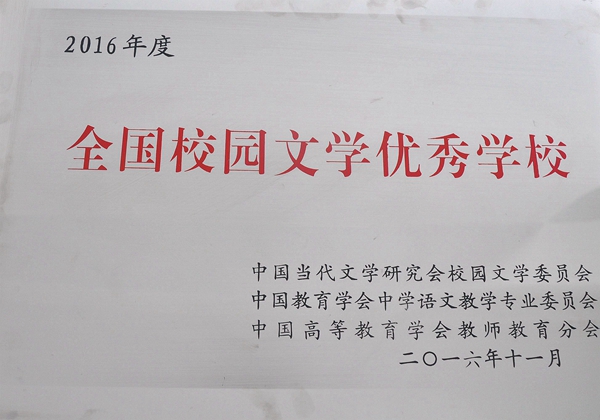 2016年度
全国校园文学优秀学校
中国当代文学研究会校园文学委员会
中国教育学会中学语文教学专业委员会
中国高等教育学会教师教育分会
二〇一六年十一月